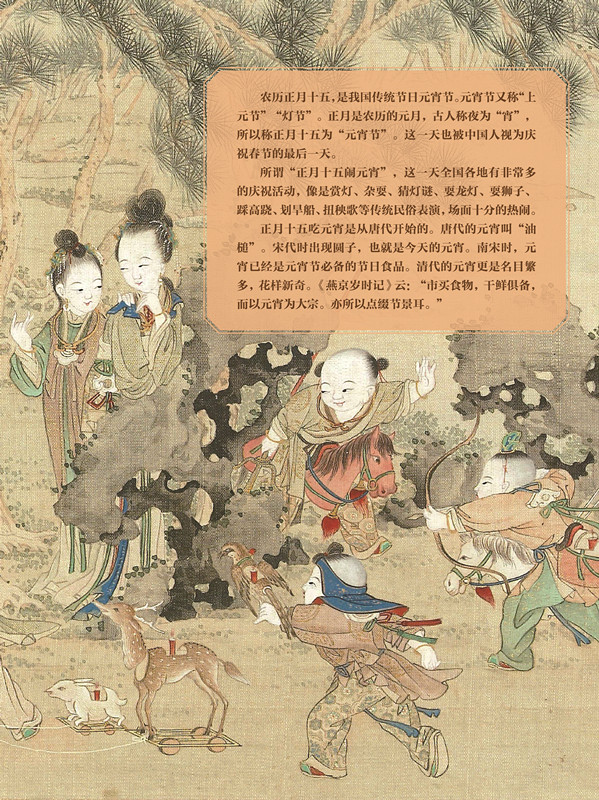 农历正月十五，是我国传统节日元宵节。元宵节又称“上
元节”“灯节”。正月是农历的元月，古人称夜为“宵”，
所以称正月十五为“元宵节”。这一天也被中国人视为庆
祝春节的最后一天。
所谓“正月十五闹元宵”，这一天全国各地有非常多
的庆祝活动，像是赏灯、杂耍、猜灯谜、耍龙灯、耍狮子、
踩高跷、划旱船、扭秧歌等传统民俗表演，场面十分的热闹。
正月十五吃元宵是从唐代开始的。唐代的元宵叫“油
𫗰”。宋代时出现圆子，也就是今天的元宵。南宋时，元
宵已经是元宵节必备的节日食品。清代的元宵更是名目繁
多，花样新奇。《燕京岁时记》云：“市买食物，干鲜俱备，
而以元宵为大宗。亦所以点缀节景耳。”